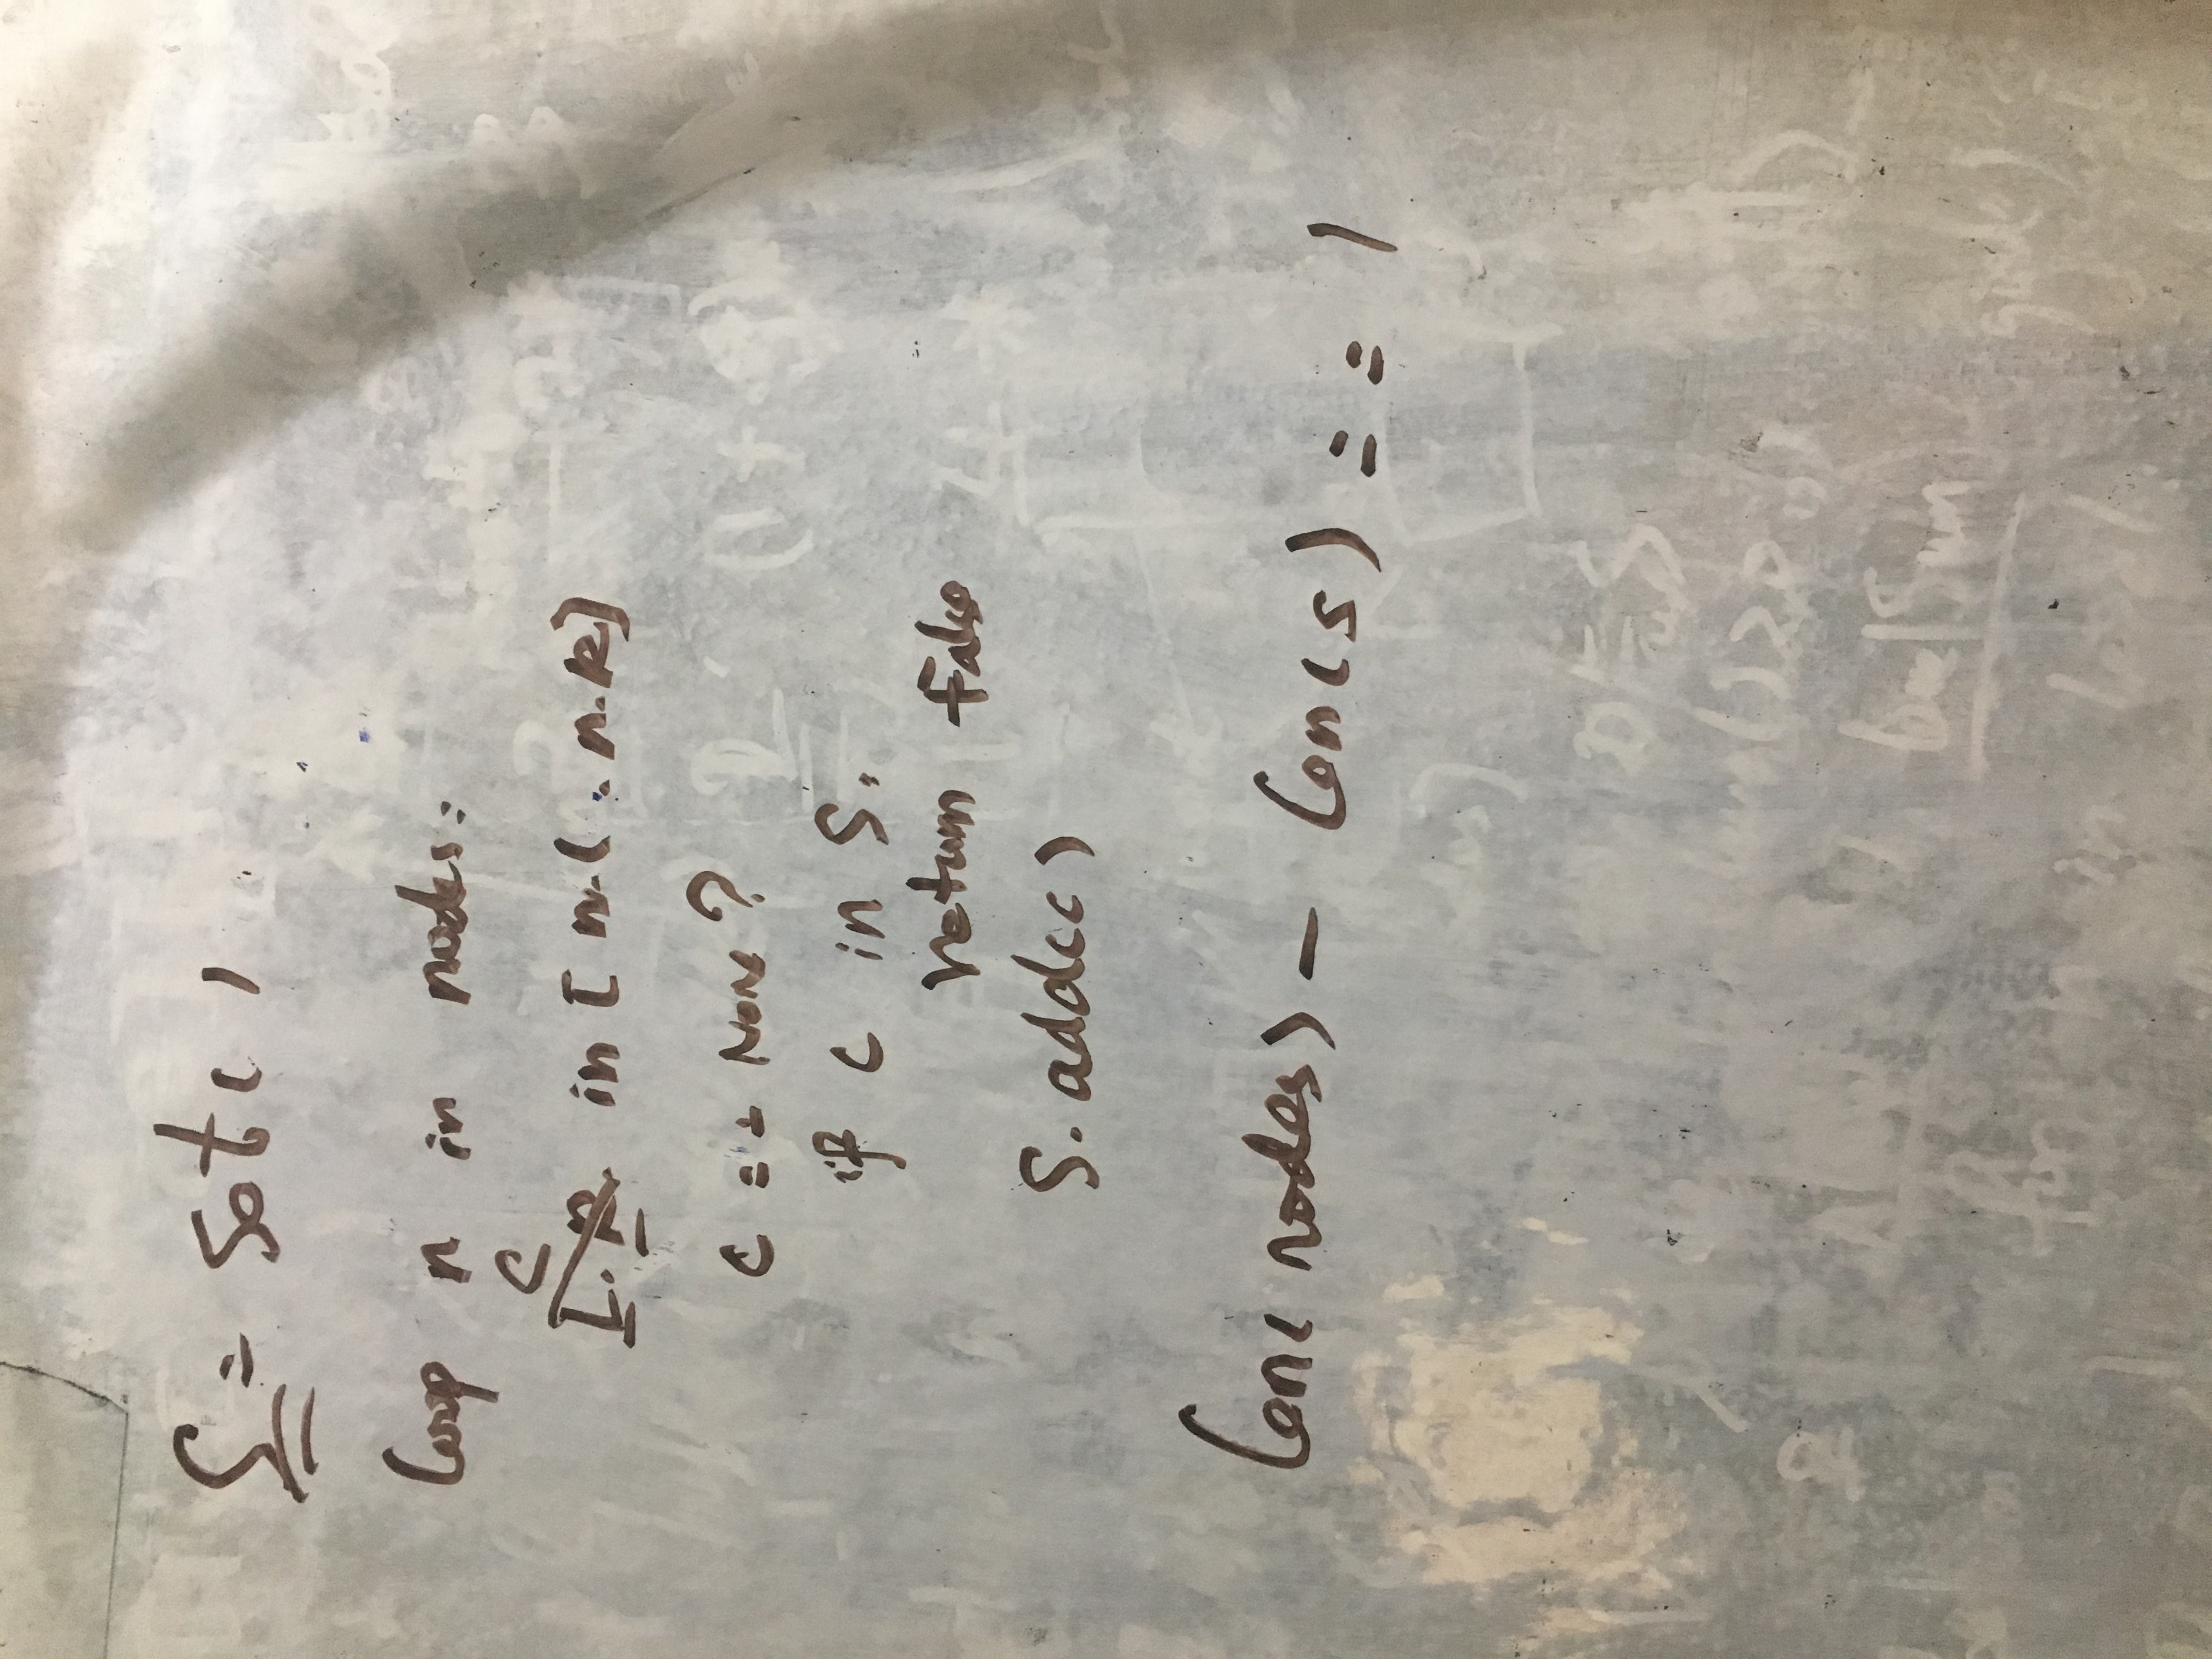 S = set()
Loop n in nodes:
C
L. R. in [ n.L, n.R]
C == None?
if c in S:
return False
S.add(c)
len( nodes) - len(s) == 1